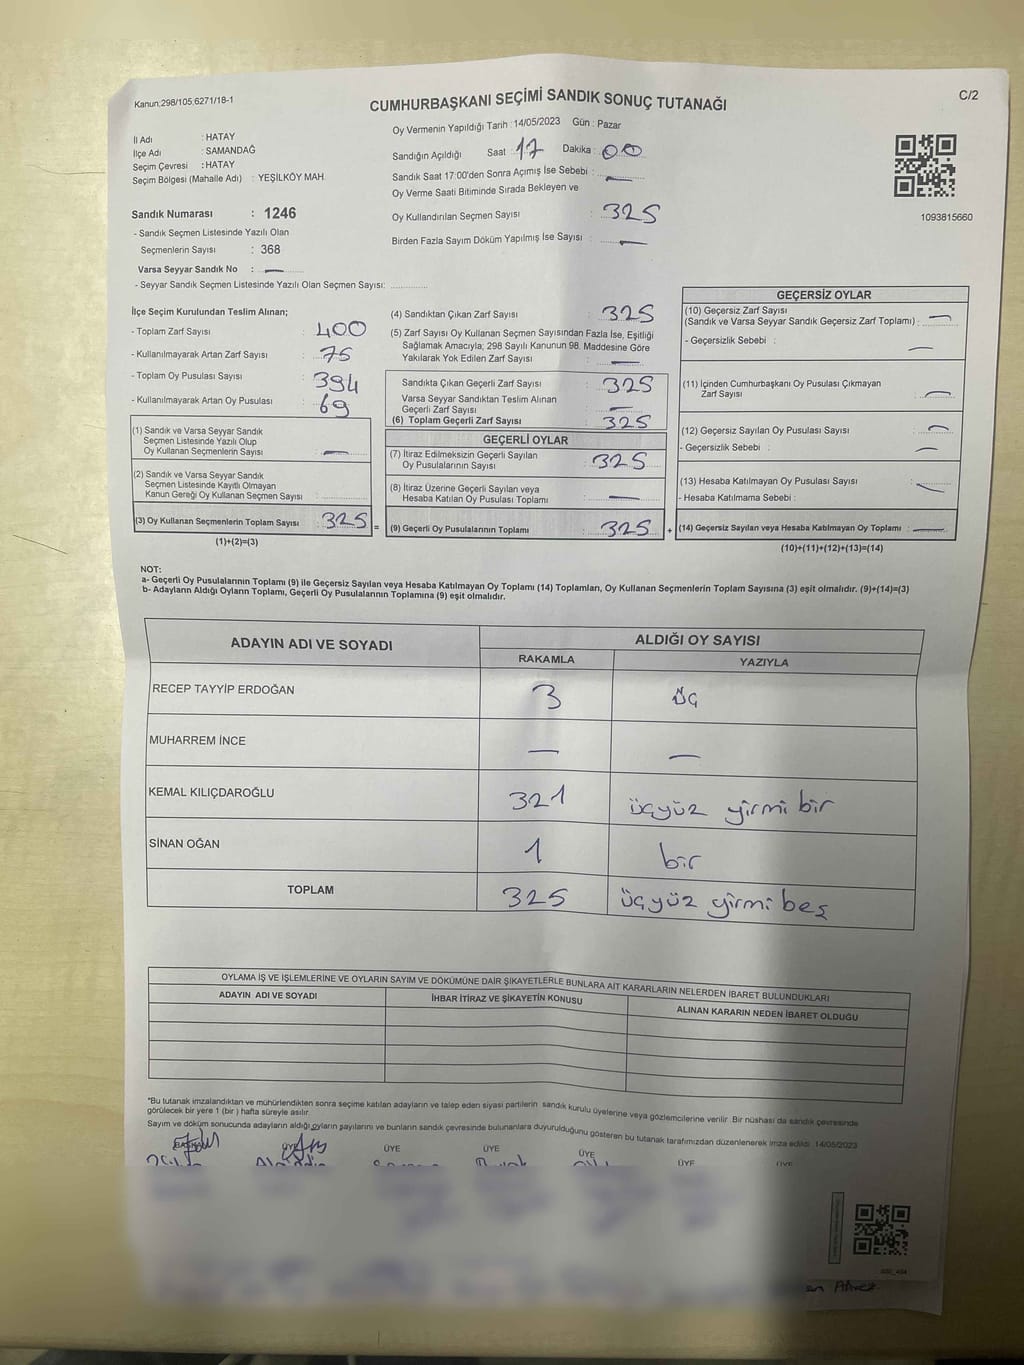 Kanun:298/105;6271/18-1
CUMHURBAŞKANI SEÇİMİ SANDIK SONUÇ TUTANAĞI
C/2
İl Adı : HATAY
İlçe Adı : SAMANDAĞ
Seçim Çevresi : HATAY
Seçim Bölgesi (Mahalle Adı) : YEŞİLKÖY MAH.
Oy Vermenin Yapıldığı Tarih :14/05/2023 Gün : Pazar
Sandığın Açıldığı Saat : 17 Dakika : 00
Sandık Saat 17:00'den Sonra Açımış İse Sebebi : —
Oy Verme Saati Bitiminde Sırada Bekleyen ve
Oy Kullandırılan Seçmen Sayısı : 325
Birden Fazla Sayım Döküm Yapılmış İse Sayısı : —
1093815660
Sandık Numarası : 1246
- Sandık Seçmen Listesinde Yazılı Olan
Seçmenlerin Sayısı : 368
Varsa Seyyar Sandık No : —
- Seyyar Sandık Seçmen Listesinde Yazılı Olan Seçmen Sayısı:
İlçe Seçim Kurulundan Teslim Alınan;
- Toplam Zarf Sayısı : 400
- Kullanılmayarak Artan Zarf Sayısı : 75
- Toplam Oy Pusulası Sayısı : 394
- Kullanılmayarak Artan Oy Pusulası : 69
(1) Sandık ve Varsa Seyyar Sandık
Seçmen Listesinde Yazılı Olup
Oy Kullanan Seçmenlerin Sayısı : —
(2) Sandık ve Varsa Seyyar Sandık
Seçmen Listesinde Kayıtlı Olmayan
Kanun Gereği Oy Kullanan Seçmen Sayısı :
(3) Oy Kullanan Seçmenlerin Toplam Sayısı : 325 =
(1)+(2)=(3)
(4) Sandıktan Çıkan Zarf Sayısı : 325
(5) Zarf Sayısı Oy Kullanan Seçmen Sayısından Fazla İse, Eşitliği
Sağlamak Amacıyla, 298 Sayılı Kanunun 98. Maddesine Göre
Yakılarak Yok Edilen Zarf Sayısı : —
Sandıkta Çıkan Geçerli Zarf Sayısı : 325
Varsa Seyyar Sandıktan Teslim Alınan
Geçerli Zarf Sayısı : —
(6) Toplam Geçerli Zarf Sayısı : 325
GEÇERLİ OYLAR
(7) İtiraz Edilmeksizin Geçerli Sayılan
Oy Pusulalarının Sayısı : 325
(8) İtiraz Üzerine Geçerli Sayılan veya
Hesaba Katılan Oy Pusulası Toplamı : —
(9) Geçerli Oy Pusulalarının Toplamı : 325 +
GEÇERSİZ OYLAR
(10) Geçersiz Zarf Sayısı
(Sandık ve Varsa Seyyar Sandık Geçersiz Zarf Toplamı) : —
- Geçersizlik Sebebi : —
(11) İçinden Cumhurbaşkanı Oy Pusulası Çıkmayan
Zarf Sayısı : —
(12) Geçersiz Sayılan Oy Pusulası Sayısı : —
- Geçersizlik Sebebi : —
(13) Hesaba Katılmayan Oy Pusulası Sayısı : —
- Hesaba Katılmama Sebebi :
(14) Geçersiz Sayılan veya Hesaba Katılmayan Oy Toplamı : —
(10)+(11)+(12)+(13)=(14)
NOT:
a- Geçerli Oy Pusulalarının Toplamı (9) ile Geçersiz Sayılan veya Hesaba Katılmayan Oy Toplamı (14) Toplamları, Oy Kullanan Seçmenlerin Toplam Sayısına (3) eşit olmalıdır. (9)+(14)=(3)
b- Adayların Aldığı Oyların Toplamı, Geçerli Oy Pusulalarının Toplamına (9) eşit olmalıdır.
ADAYIN ADI VE SOYADI
ALDIĞI OY SAYISI
RAKAMLA YAZIYLA
RECEP TAYYİP ERDOĞAN 3 üç
MUHARREM İNCE — —
KEMAL KILIÇDAROĞLU 321 üçyüz yirmi bir
SİNAN OĞAN 1 bir
TOPLAM 325 üçyüz yirmi beş
OYLAMA İŞ VE İŞLEMLERİNE VE OYLARIN SAYIM VE DÖKÜMÜNE DAİR ŞİKAYETLERLE BUNLARA AİT KARARLARIN NELERDEN İBARET BULUNDUKLARI
ADAYIN ADI VE SOYADI İHBAR İTİRAZ VE ŞİKAYETİN KONUSU ALINAN KARARIN NEDEN İBARET OLDUĞU
"Bu tutanak imzalandıktan ve mühürlendikten sonra seçime katılan adayların ve talep eden siyasi partilerin sandık kurulu üyelerine veya gözlemcilerine verilir. Bir nüshası da sandık çevresinde
görülecek bir yere 1 (bir ) hafta süreyle asılır.
Sayım ve döküm sonucunda adayların aldığı oyların paylarını ve bunların sandık çevresinde bulunanlara duyurulduğunu gösteren bu tutanak tarafımızdan düzenlenerek imza edildi. 14/05/2023
BAŞKAN ÜYE ÜYE ÜYE ÜYE ÜYE ÜYE